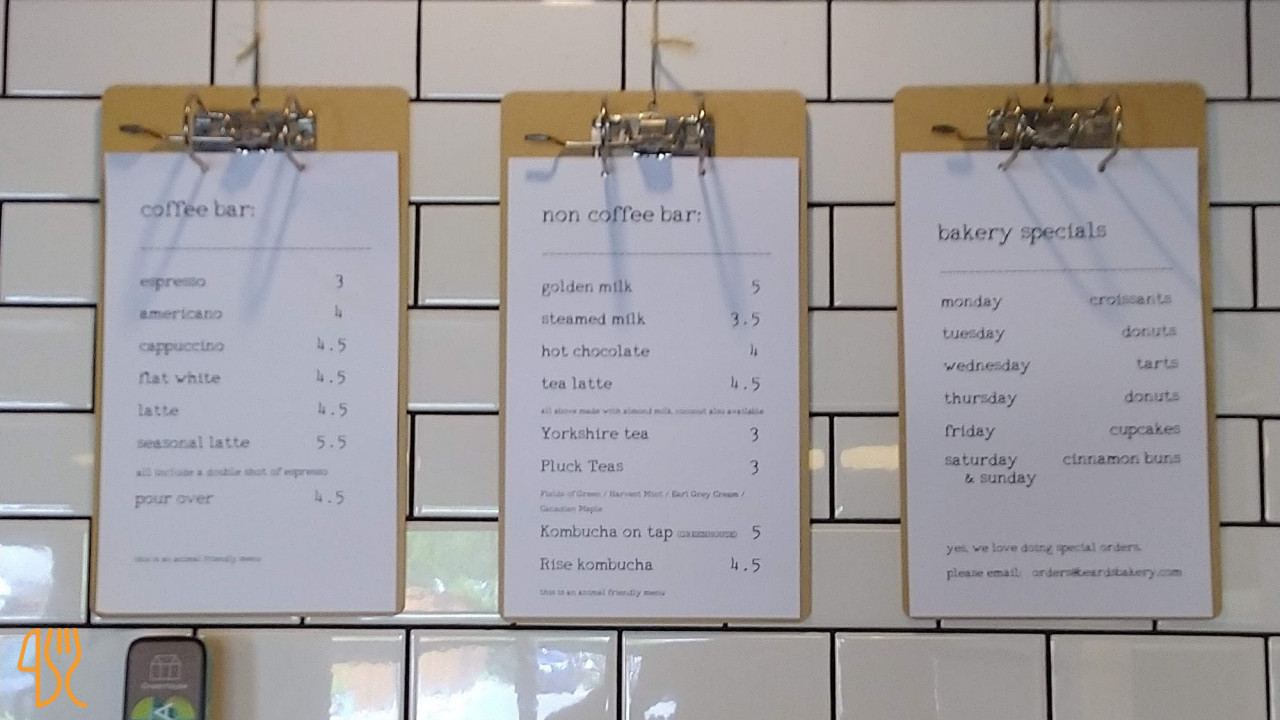 coffee bar:
espresso 3
americano 4
cappuccino 4.5
flat white 4.5
latte 4.5
seasonal latte 5.5
all include a double shot of espresso
pour over 4.5
this is an animal friendly menu
non coffee bar:
golden milk 5
steamed milk 3.5
hot chocolate 4
tea latte 4.5
all above made with almond milk, coconut also available
Yorkshire tea 3
Pluck Teas 3
Fields of Green / Harvest Mint / Earl Grey Cream /
Canadian Maple
Kombucha on tap (GREENHOUSE) 5
Rise kombucha 4.5
this is an animal friendly menu
bakery specials
monday croissants
tuesday donuts
wednesday tarts
thursday donuts
friday cupcakes
saturday cinnamon buns
& sunday
yes, we love doing special orders.
please email: orders@beardsbakery.com
Greenhouse